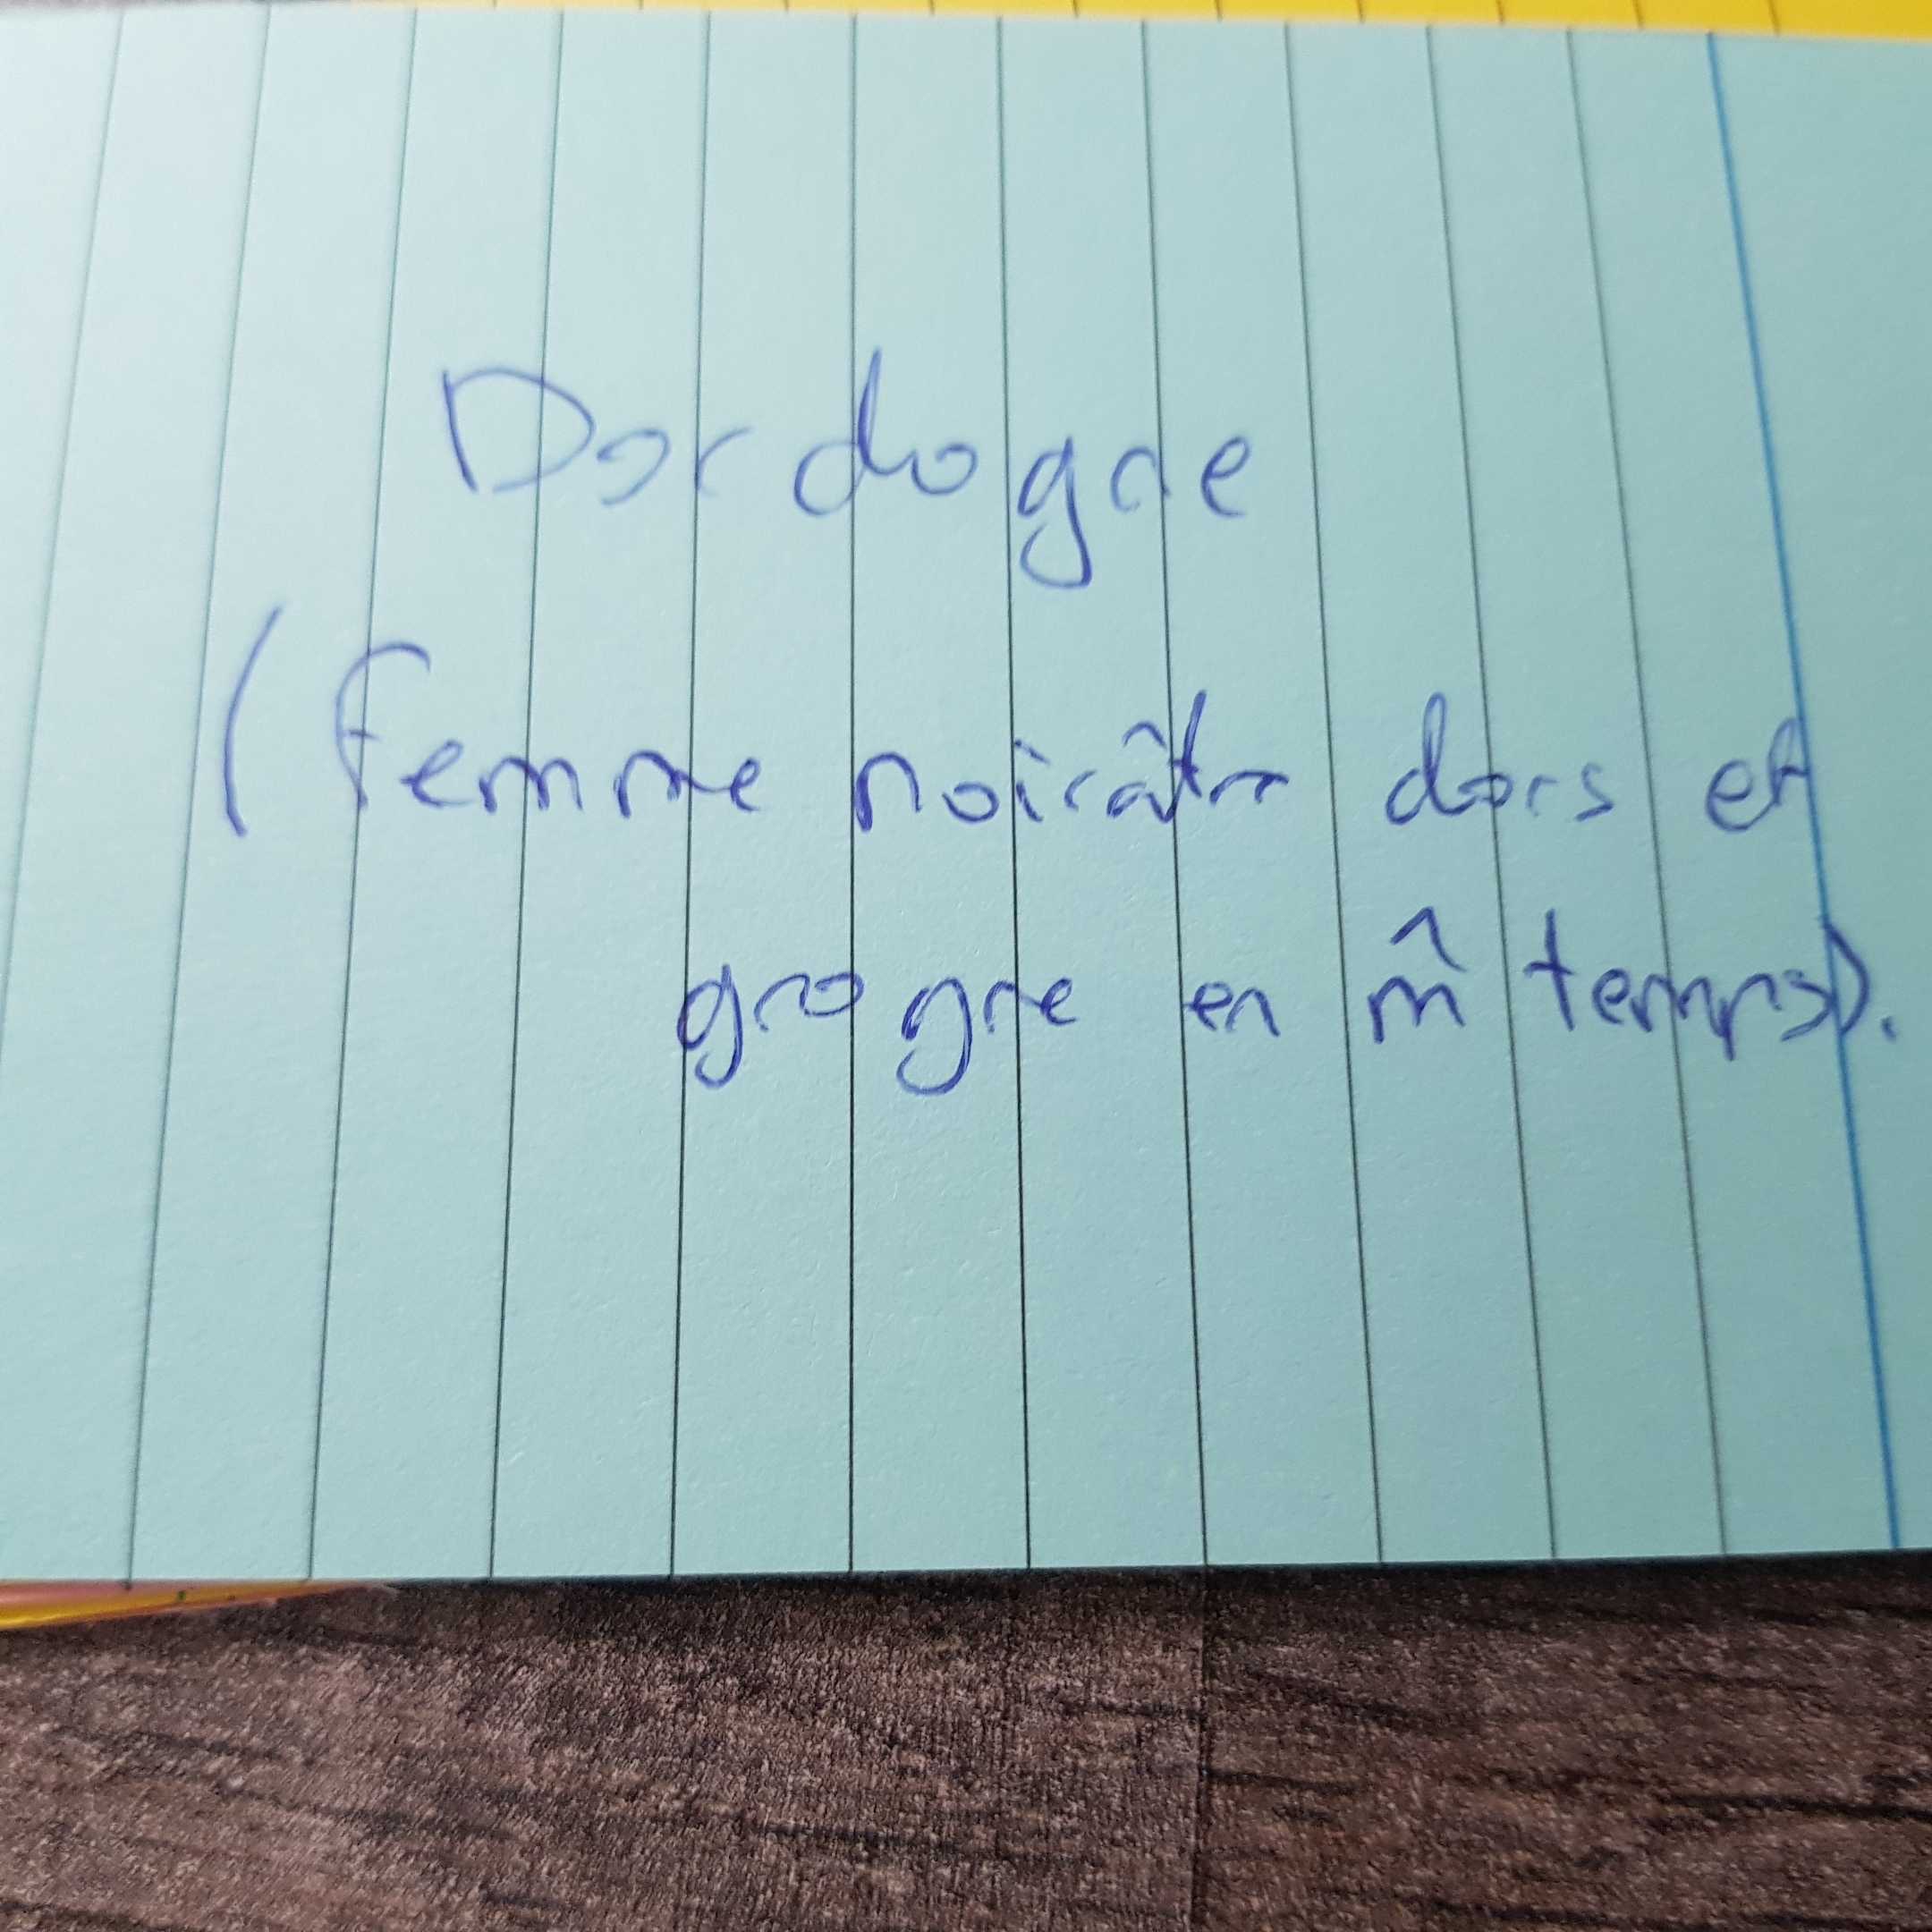 Dordogne
(femme noirâtre dors et
grogne en m̂ temps).